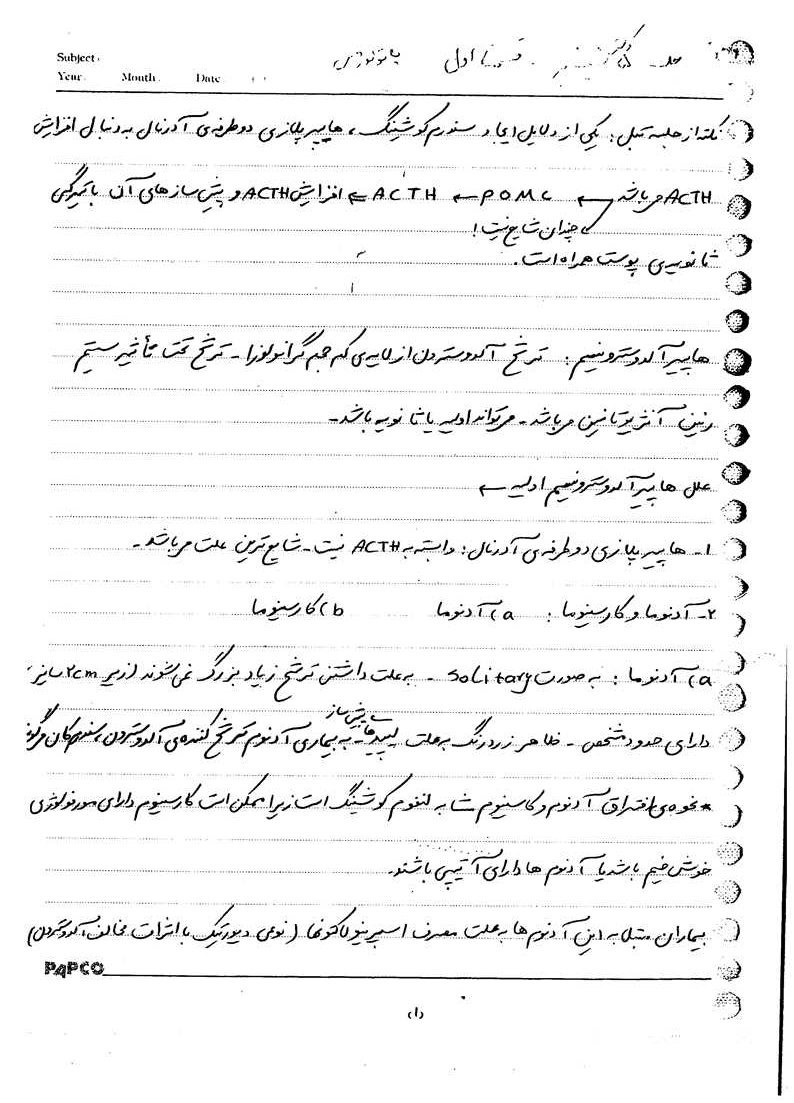 Subject:
Year. Month. Date. ( )
جلسه دکتر - قسمت اول پاتولوژی
نکته از جلسه قبل: یکی از دلایل ایجاد سندرم کوشینگ، هایپرپلازی دو طرفه‌ی آدرنال به دنبال افزایش
ACTH می‌باشد ← POMC ← ACTH ← افزایش ACTH و پیش سازهای آن با تیرگی
چندان شایع نیست!
ثانویه‌ی پوست همراه است.
هایپرآلدوسترونیسم: ترشح آلدوسترون از لایه‌ی گرانولوزا - ترشح تحت تأثیر سیستم
رنین آنژیوتانسین می‌باشد - می‌تواند اولیه یا ثانویه باشد -
علل هایپرآلدوسترونیسم اولیه ←
۱- هایپرپلازی دو طرفه‌ی آدرنال: وابسته به ACTH نیست - شایع‌ترین علت می‌باشد -
۲- آدنوما و کارسینوما: a) آدنوما b) کارسینوما
a) آدنوما: به صورت Solitary - به علت داشتن ترشح زیاد بزرگ نمی‌شوند (زیر ۲cm سایز
پیش ساز
دارای حدود مشخص - ظاهر زرد رنگ به علت لیپیدها - به بیماری آدنوم ترشح کننده‌ی آلدوسترون، سندرم کان می‌گو
* نحوه‌ی افتراق آدنوم و کارسینوم مشابه کوشینگ است زیرا ممکن است کارسینوم دارای مورفولوژی
خوش خیم باشد یا آدنوم ها دارای آتیپی باشند.
بیماران مبتلا به این آدنوم ها به علت مصرف اسپیرینولاکتون‌ها (نوعی دیورتیک با اثرات مخالف آلدوسترون)
PAPCO
(۱)